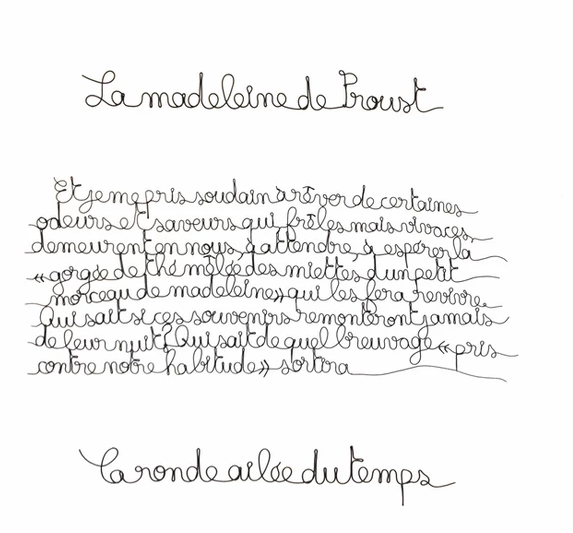 La madeleine de Proust
Et je me pris soudain à rêver de certaines
odeurs et saveurs qui frêles mais vivaces,
demeurent en nous, à attendre, à espérer la
«gorgée de thé mêlée des miettes d'un petit
morceau de madeleine» qui les fera revivre.
Qui sait si ces souvenirs remonteront jamais
de leur nuit? Qui sait de quel breuvage «pris
contre notre habitude» sortira
La ronde ailée du temps